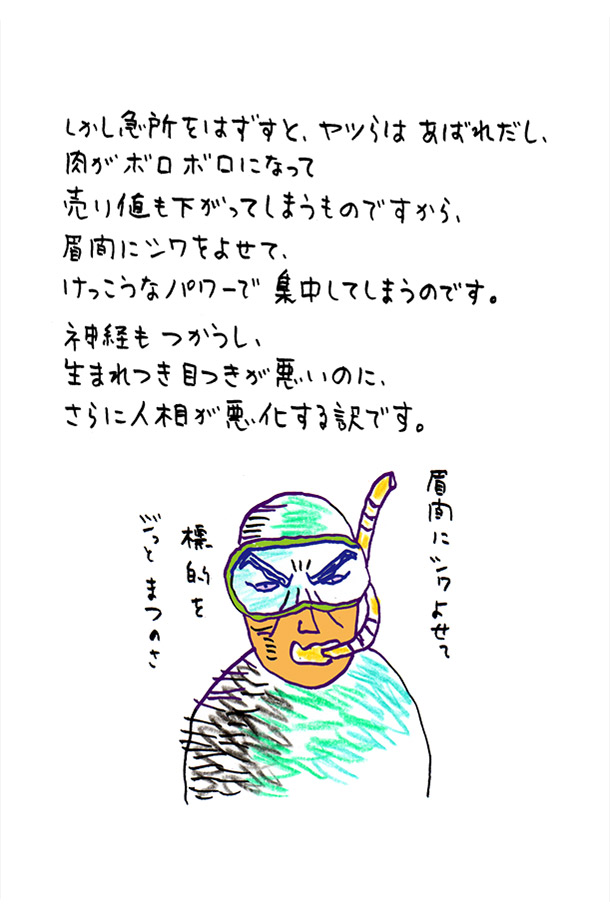 しかし急所をはずすと、ヤツらは あばれだし、
肉がボロボロになって
売り値も下がってしまうものですから、
眉間にシワをよせて、
けっこうなパワーで 集中してしまうのです。
神経もつかうし、
生まれつき目つきが悪いのに、
さらに人相が悪化する訳です。
眉間にシワよせて
標的を
ジっとまつのさ